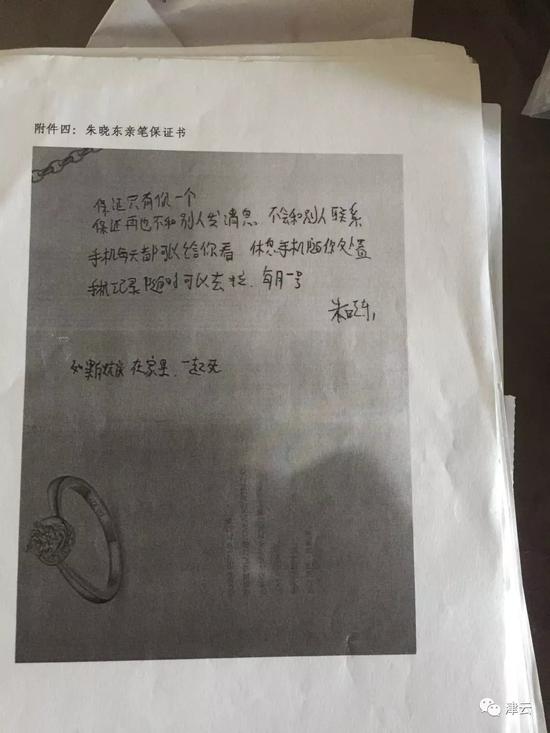 附件四：朱晓东亲笔保证书
保证只有你一个
保证再也不和别人发消息 不会和别人联系
手机每天都可以给你看 休息手机随你处置
手机记录随时可以去拉、每月一号
朱晓东
如果有 在家里、一起死
津云